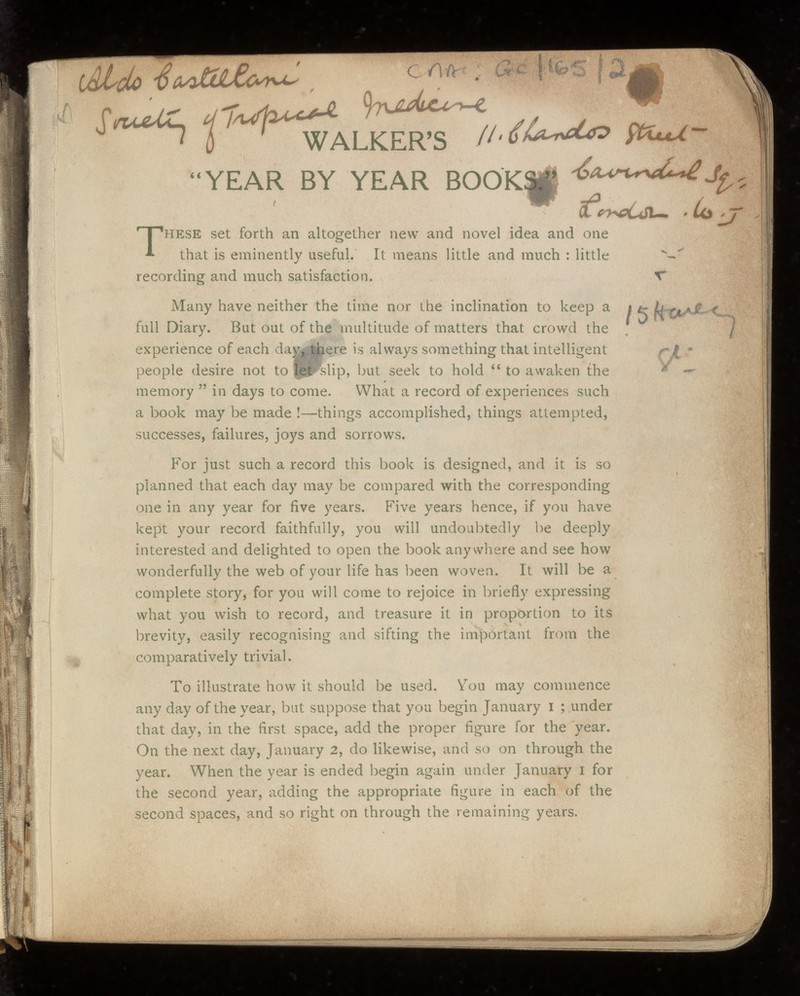 Aldo Castellani
CMAC: GC/165/2
Society of Tropical Medicine
WALKER'S
11. Chandos Street
"YEAR BY YEAR BOOKS."
Cavendish Sq,
London. W
THESE set forth an altogether new and novel idea and one
that is eminently useful. It means little and much : little
recording and much satisfaction.
Many have neither the time nor the inclination to keep a
full Diary. But out of the multitude of matters that crowd the
experience of each day, there is always something that intelligent
people desire not to let slip, but seek to hold “ to awaken the
memory ” in days to come. What a record of experiences such
a book may be made !—things accomplished, things attempted,
successes, failures, joys and sorrows.
15 Harley
For just such a record this book is designed, and it is so
planned that each day may be compared with the corresponding
one in any year for five years. Five years hence, if you have
kept your record faithfully, you will undoubtedly be deeply
interested and delighted to open the book anywhere and see how
wonderfully the web of your life has been woven. It will be a
complete story, for you will come to rejoice in briefly expressing
what you wish to record, and treasure it in proportion to its
brevity, easily recognising and sifting the important from the
comparatively trivial.
To illustrate how it should be used. You may commence
any day of the year, but suppose that you begin January 1 ; under
that day, in the first space, add the proper figure for the year.
On the next day, January 2, do likewise, and so on through the
year. When the year is ended begin again under January 1 for
the second year, adding the appropriate figure in each of the
second spaces, and so right on through the remaining years.